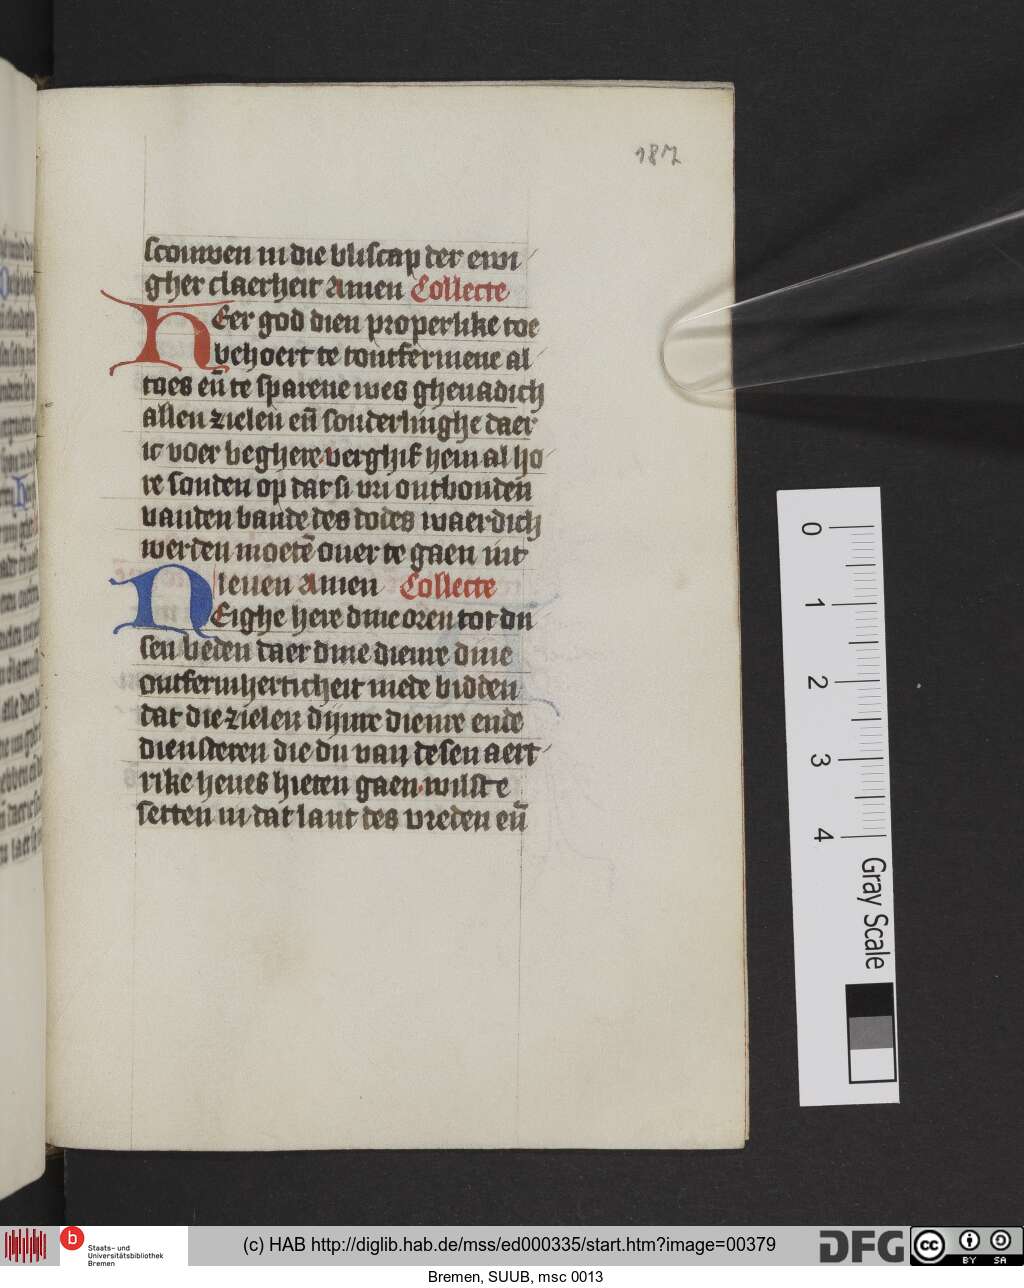 187
scouwen in die bliscap der ewi
gher claerheit Amen Collecte
HEer god dien properlike toe
behoert te ontfermene al
toes eñ te sparene wes ghenadich
allen zielen eñ sonderlinghe daer
ic voer beghere verghif hem al ho
re sonden op dat si vri ontbonden
vanden bande des dodes waerdich
werden moetē over te gaen int
leven Amen Collecte
NEighe here dine oren tot on
sen beden daer dine diemre dine
ontfermherticheit mede bidden
dat die zielen dijnre dienre ende
diensteren die du van desen aert
rike heves hieten gaen wilste
setten in dat lant des vreden eñ
0
1
2
3
4
Gray Scale
b Staats- und
Universitätsbibliothek
Bremen
(c) HAB http://diglib.hab.de/mss/ed000335/start.htm?image=00379
DFG
cc BY SA
Bremen, SUUB, msc 0013